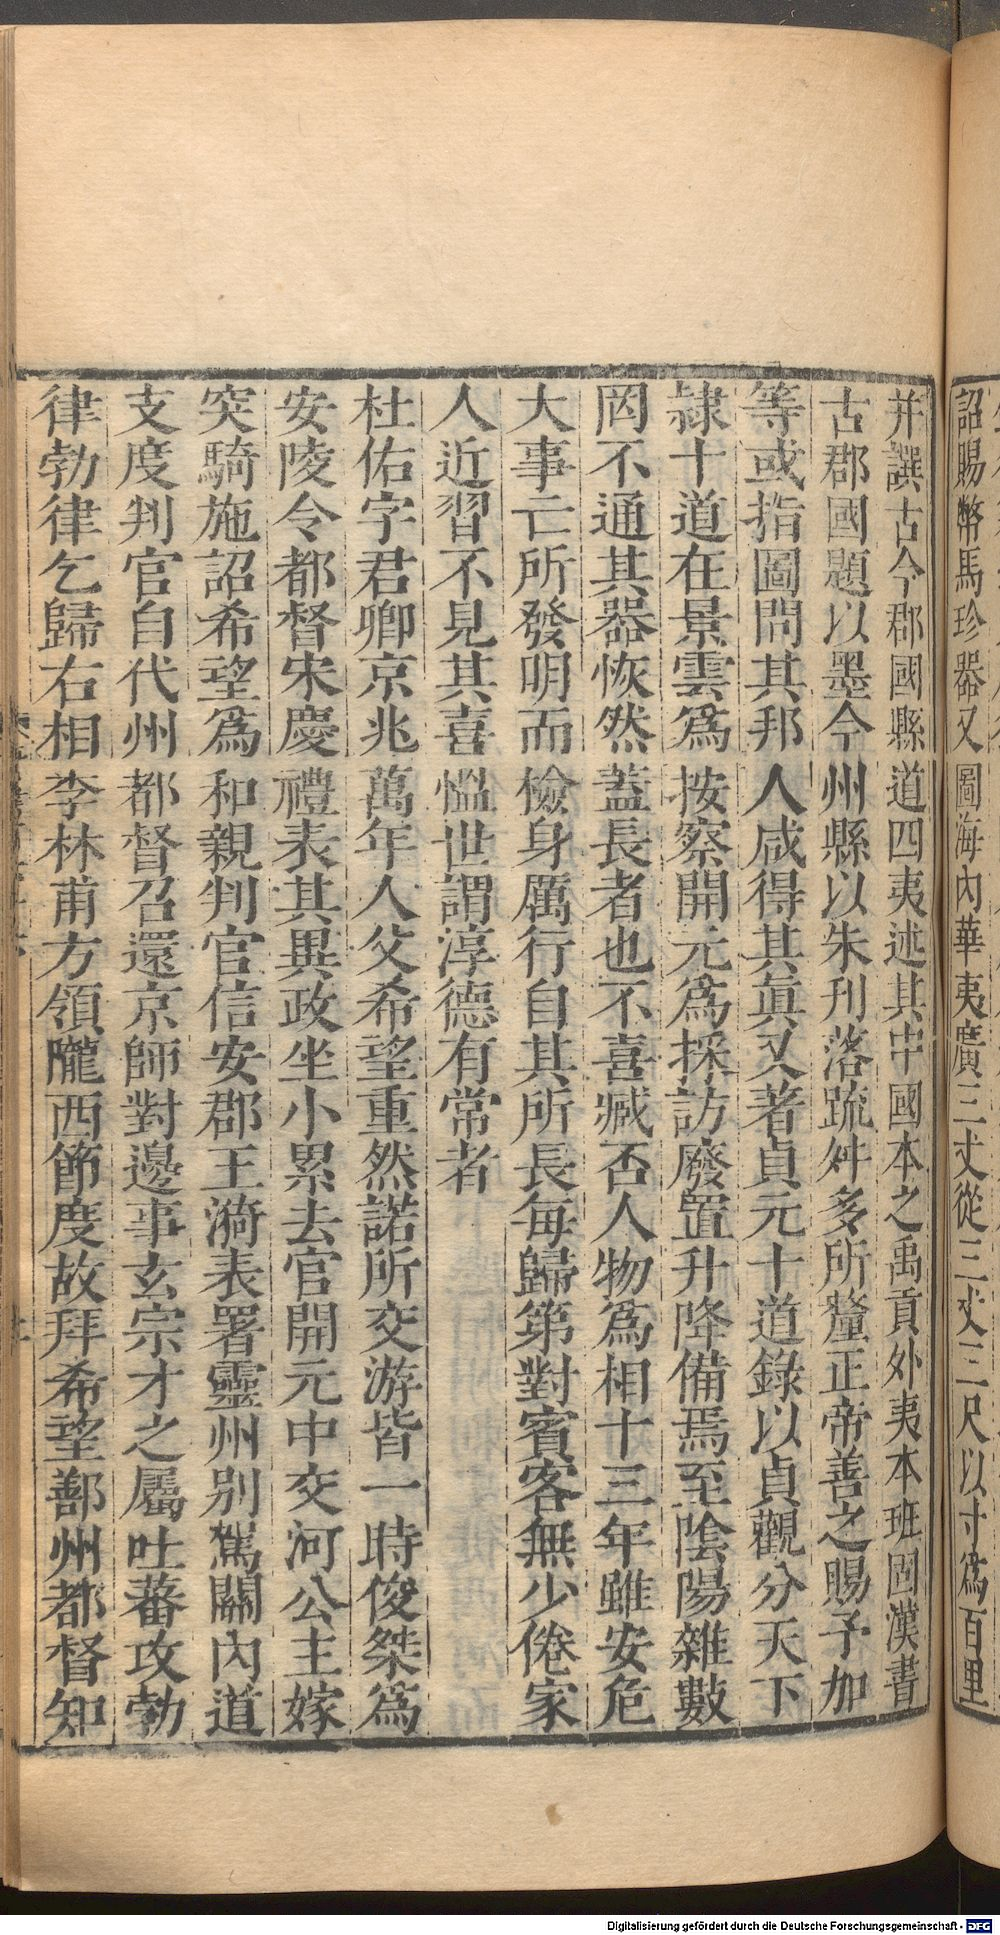 詔賜幣馬珍器又圖海內華夷廣三丈從三丈三尺以寸爲百里
并譔古今郡國縣道四夷述其中國本之禹貢外夷本班固漢書
古郡國題以墨今州縣以朱刋落疏舛多所釐正帝善之賜予加
等或指圖問其邦人咸得其眞又著貞元十道錄以貞觀分天下
隷十道在景雲爲按察開元爲採訪廢置升降備焉至陰陽雜數
罔不通其器恢然蓋長者也不喜臧否人物爲相十三年雖安危
大事亡所發明而檢身厲行自其所長每歸第對賓客無少倦家
人近習不見其喜慍世謂淳德有常者
杜佑字君卿京兆萬年人父希望重然諾所交游皆一時俊桀爲
安陵令都督宋慶禮表其異政坐小累去官開元中交河公主嫁
突騎施詔希望爲和親判官信安郡王漪表署靈州別駕關內道
支度判官自代州都督召還京師對邊事玄宗才之屬吐蕃攻勃
律勃律乞歸右相李林甫方領隴西節度故拜希望鄯州都督知
Digitalisierung gefördert durch die Deutsche Forschungsgemeinschaft - DFG